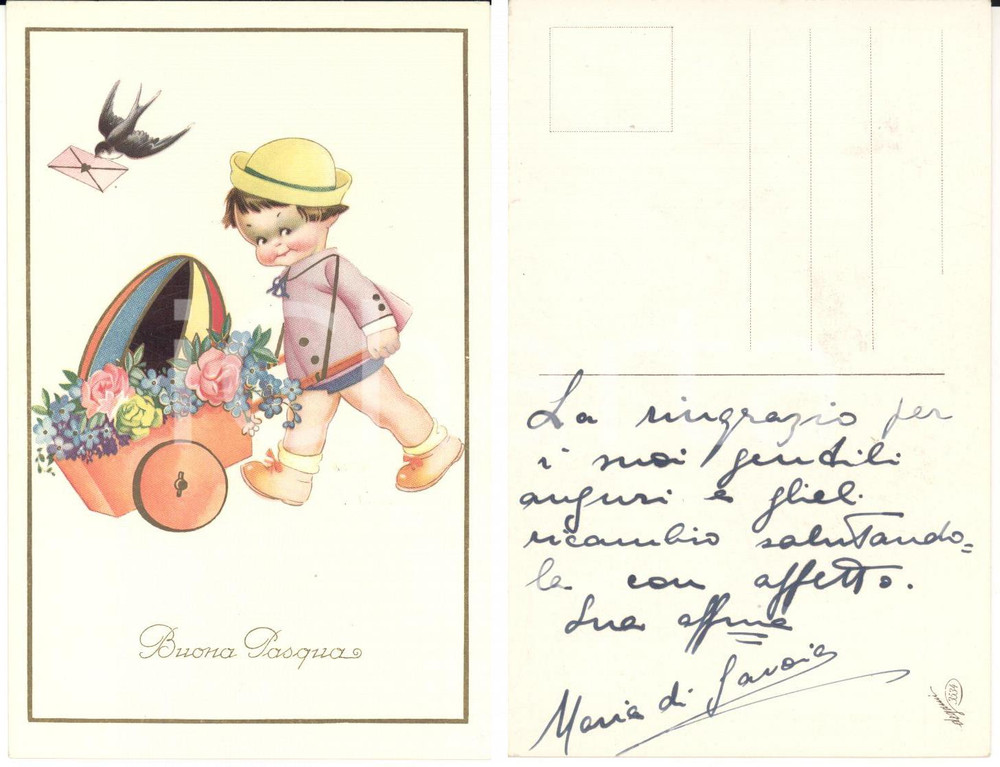 Buona Pasqua
La ringrazio per
i suoi gentili
auguri e gliel
ricambio salutando=
la con affetto.
Sua affma
Maria di Savoia
3534